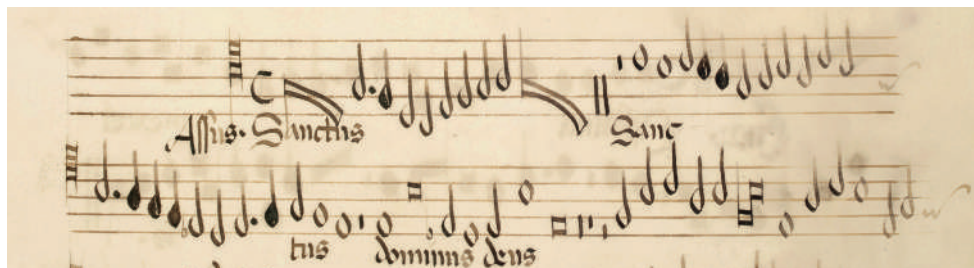 Assus. Sanctus Sanc
tus dominus deus